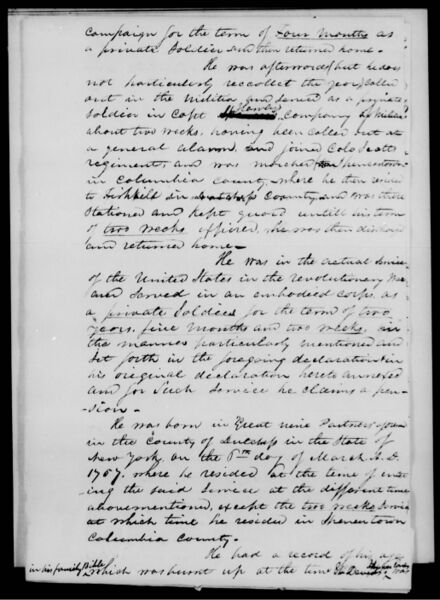 campaign for the term of Four Months as
a private Soldier and then returned home.
He was afterwards (but he does
not particularly reccollect the year) called
out in the Militia and served as a private
soldier in Capt Company of Militia
about two weeks, having been called out at
a general alarm, and joined Colo
regiment, and was marched from Spencertown
in Columbia county, where he then resided
to Fishkill in County and was there
stationed and kept guard untill his term
of two weeks expired, he was then discharged
and returned home.
He was in the actual service
of the United States in the revolutionary War
and served in an embodied corps, as
a private Soldier for the term of two
years, five Months and two weeks, in
the manner particularly mentioned and
set forth in the foregoing declaration in
his original declaration hereto annexed
and for such service he claims a pen-
sion.
He was born in Great nine Partners
in the County of Dutchess in the State of
New York, on the 8th day of March A.D.
1757, where he resided at the time of enter
ing the said service at the different times
abovementioned, except the two weeks service
at which time he resided in Spencertown
Columbia County.
He had a record of his age
in his family Bible which was burnt up at the time was